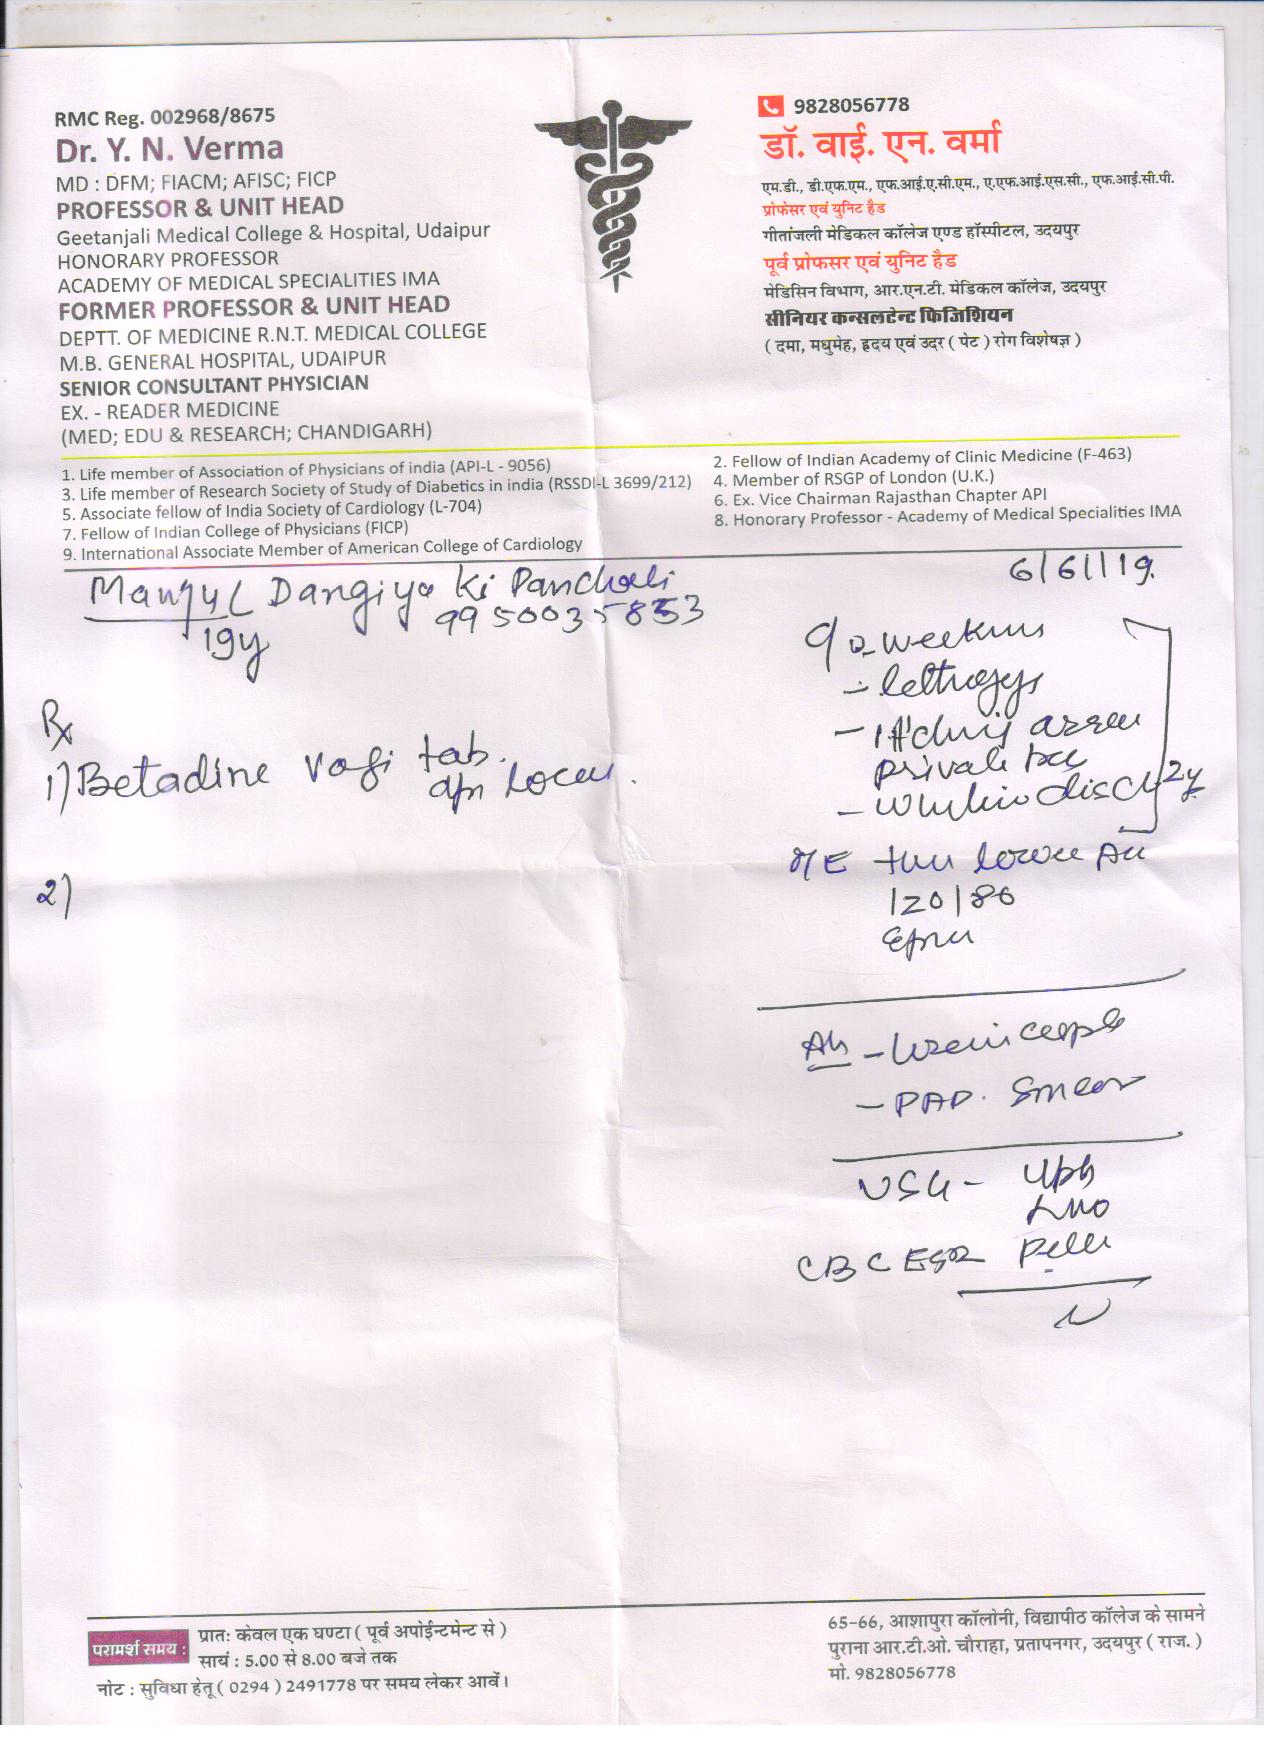 RMC Reg. 002968/8675
Dr. Y. N. Verma
MD : DFM; FIACM; AFISC; FICP
PROFESSOR & UNIT HEAD
Geetanjali Medical College & Hospital, Udaipur
HONORARY PROFESSOR
ACADEMY OF MEDICAL SPECIALITIES IMA
FORMER PROFESSOR & UNIT HEAD
DEPTT. OF MEDICINE R.N.T. MEDICAL COLLEGE
M.B. GENERAL HOSPITAL, UDAIPUR
SENIOR CONSULTANT PHYSICIAN
EX. - READER MEDICINE
(MED; EDU & RESEARCH; CHANDIGARH)
9828056778
डॉ. वाई. एन. वर्मा
एम.डी., डी.एफ.एम., एफ.आई.ए.सी.एम., ए.एफ.आई.एस.सी., एफ.आई.सी.पी.
प्रोफेसर एवं युनिट हैड
गीतांजली मेडिकल कॉलेज एण्ड हॉस्पीटल, उदयपुर
पूर्व प्रोफसर एवं युनिट हैड
मेडिसिन विभाग, आर.एन.टी. मेडिकल कॉलेज, उदयपुर
सीनियर कन्सलटेन्ट फिजिशियन
( दमा, मधुमेह, हृदय एवं उदर ( पेट ) रोग विशेषज्ञ )
1. Life member of Association of Physicians of india (API-L - 9056)
2. Fellow of Indian Academy of Clinic Medicine (F-463)
3. Life member of Research Society of Study of Diabetics in india (RSSDI-L 3699/212)
4. Member of RSGP of London (U.K.)
5. Associate fellow of India Society of Cardiology (L-704)
6. Ex. Vice Chairman Rajasthan Chapter API
7. Fellow of Indian College of Physicians (FICP)
8. Honorary Professor - Academy of Medical Specialities IMA
9. International Associate Member of American College of Cardiology
6/6/19
Dangiyo Ki Pancholi
9950035853
19y
Rx
1) Betadine Vagi tab.
2)
private
2y
O/E
120/80
- PAP. Smear
USG -
CBC ESR
N
परामर्श समय :
प्रातः केवल एक घण्टा ( पूर्व अपोईन्टमेन्ट से )
सायं : 5.00 से 8.00 बजे तक
नोट : सुविधा हेतू ( 0294 ) 2491778 पर समय लेकर आवें।
65-66, आशापुरा कॉलोनी, विद्यापीठ कॉलेज के सामने
पुराना आर.टी.ओ. चौराहा, प्रतापनगर, उदयपुर ( राज. )
मो. 9828056778